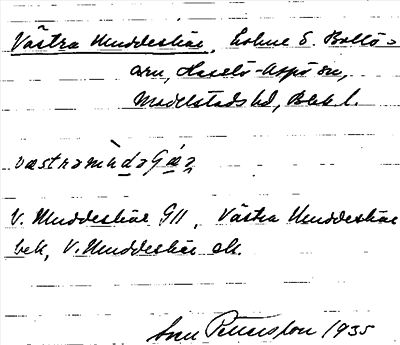 Västra Muddeskär, holme S. Bollö-
arn, Hasslö-Aspö sn,
Medelstads hd, Blek. l.
västramùdaSǽr
V. Muddeskär GU, Västra Muddeskär
bek, V. Muddeskär ek.
Sven Petersson 1935